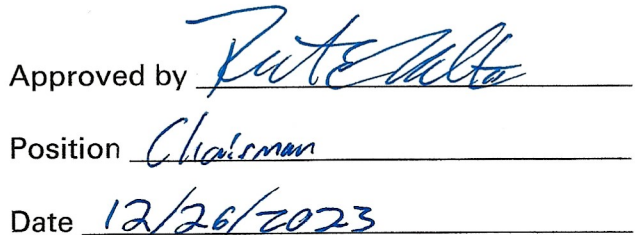 Approved by
Position Chairman
Date 12/26/2023